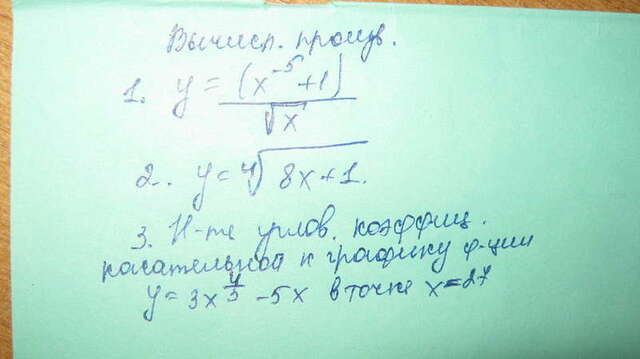 Вычисл. произв.
1. y = (x^-5 + 1) / √x
2. y = ∜(8x+1).
3. Н-те углов. коэффиц.
касательной к графику ф-ции
y = 3x^(4/3) - 5x в точке x = 27